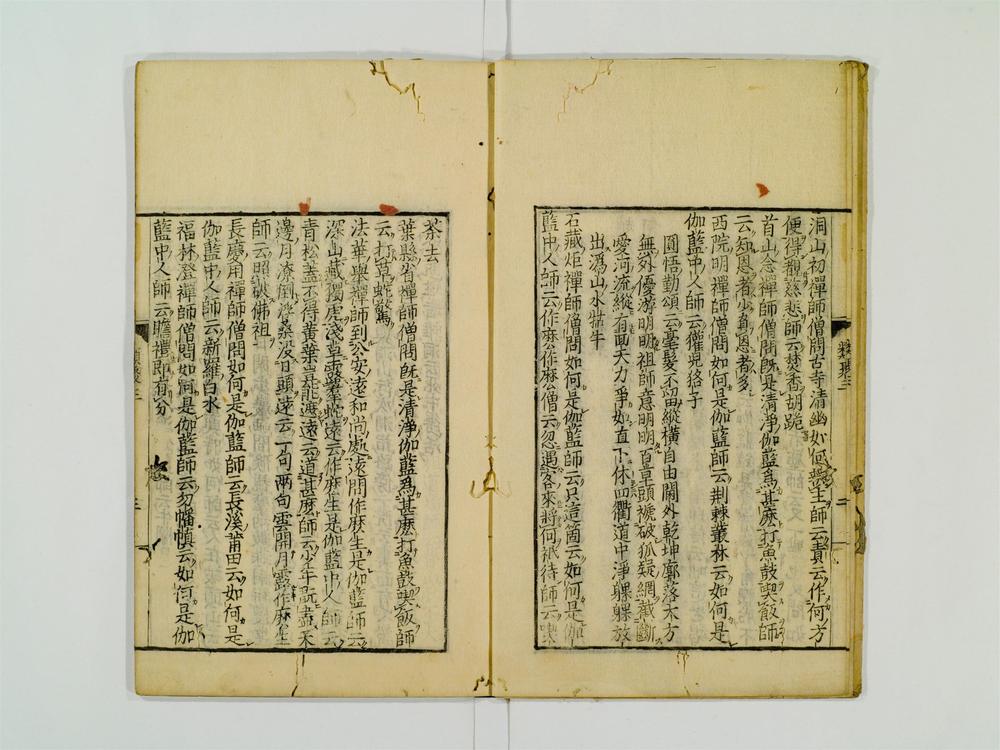 洞山初禪師僧問古寺清幽如何爲主師云責云作何方
便得覩慈悲師云焚香胡跪
首山念禪師僧問既是清淨伽藍爲甚麼打魚鼓喫飯師
云知恩者少負恩者多
西院明禪師僧問如何是伽藍師云荆棘叢林云如何是
伽藍中人師云獾兒狢子
圓悟勤頌云毫髮不留縱橫自由闢外乾坤廓落大方
無外優游明明祖師意明明百草頭褫破狐疑網截斷
愛河流縱有回天力爭如直下休四衢道中淨躶躶放
出溈山水牯牛
石藏炬禪師僧問如何是伽藍師云只這箇云如何是伽
藍中人師云作麽作麽僧云忽遇客來將何祇待師云喫
茶去
葉縣省禪師僧問既是清淨伽藍爲甚麽打魚鼓喫飯師
云打草蛇驚
法華舉禪師到公安遠和尚處遠問作麽生是伽藍師云
深山藏獨虎淺草露羣蛇遠云作麽生是伽藍中人師云
青松蓋不得黄葉豈能遮遠云道甚麽師云少年翫盡天
邊月潦倒扶桑没日頭遠云一句兩句雲開月露作麽生
師云照破佛祖
長慶用禪師僧問如何是伽藍師云長溪莆田云如何是
伽藍中人師云新羅白水
福林澄禪師僧問如何是伽藍師云勿幡幀云如何是伽
藍中人師云瞻禮即有分